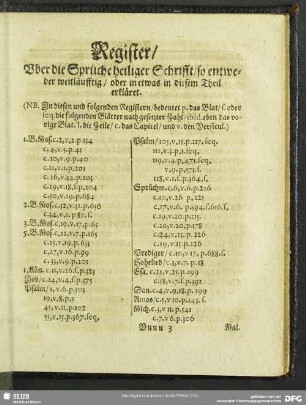 Register/
Vber die Sprüche heiliger Schrifft/ so entwe-
der weitläufftig/ oder in etwas in diesem Theil
erkläret.
(NB. In diesen und folgenden Registern/ bedeutet p. das Blat/ f. oder
seq. die folgenden Blätter nach gesetzter Zahl/ ibid. eben das vo-
rige Blat. l. die Zeile/ c. das Capitel/ und v. den Versicul.)
1. B. Mos. c.2, v.2. p.134
c.4, v.5. p.45
c.10, v.9. p.40
c.11, v.1. p.201
c.16, v.
c.19, v.18. p.204
c.50, v.19. p.684
2. B. Mos. c.32, v.32. p.656
c.34, v.1. p.87. f.
3. B. Mos. c.19, v.17. p.65
5. B. Mos. c.22, v.7. p.165
c.25, v.19. p.631
c.27, v.16. p.99
c.33, v.9. p.203
1. Kön. c.15, v.26. f. p.325
Job/ c.24, v.4. p.575
Psalm/ 1, v.6. p.505
19, v.8. p.5
45, v.11. p.102
55, v.15. p.367. seq.
Psalm/ 103, v.15. p.217. seq.
111, v.3. p.1. seq.
119, v.
v.9. p.573. f.
128, v.1. f. p.364. f.
Sprüchw. c.6, v.6. p.226
c.10, v.26. p.225
c.17, v.6. p.594. f. 616. f.
c.19, v.20. p.215.
c.20, v.20. p.178
c.24, v.21. p.226
c.29, v.15. p.226
Prediger/ c.10, v.17. p.688. f.
Hohelied/ c.3, v.7. p.18
Esa. c.21, v.25. p.199
c.58, v.7. f. p.392
Dan. c.4, v.9. 18. p.199
Amos/ c.5, v.10. p.143. f.
Mich. c.3, v.11. p.541
c.7, v.6. p.306
Vuuu 3 Mal.
SLUB
DFG